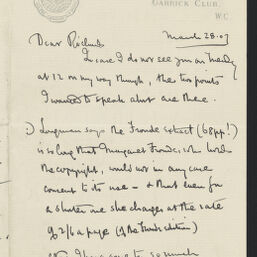 GARRICK CLUB,
W.C.
March 28. 07
Dear
In case I do not see you on Tuesday
at 12 on my way through, the two points
I wanted to speak about are these.
1) Longman says the Froude extract (68 pp!)
is so long that Margaret Froude, who holds
the copyright, would not in any case
consent to its use — & that even for
a shorter one she charges at the rate
of 2/6 a page (of the Froude edition)
I have come to so much